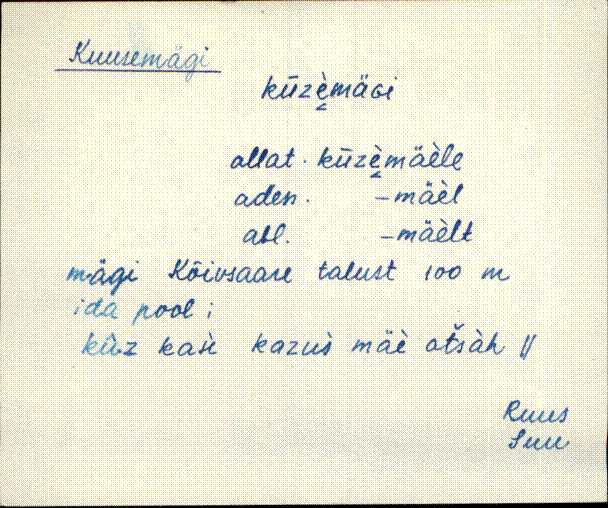 Kuusemägi
kūzèmäGi
allat. kūzèmäèle
aden. -mäèl
abl. -mäèlt
mägi Kõivsaare talust 100 m
ida pool;
kazuì mäè otšàh ||
Ruus